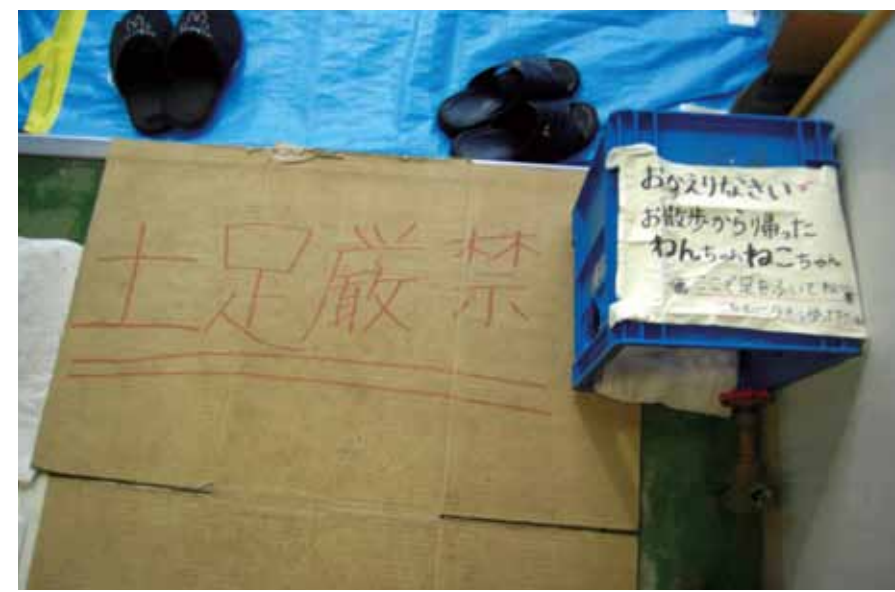 土足厳禁
おかえりなさい
お散歩から帰った
わんちゃんねこちゃん
ここで足をふいてね